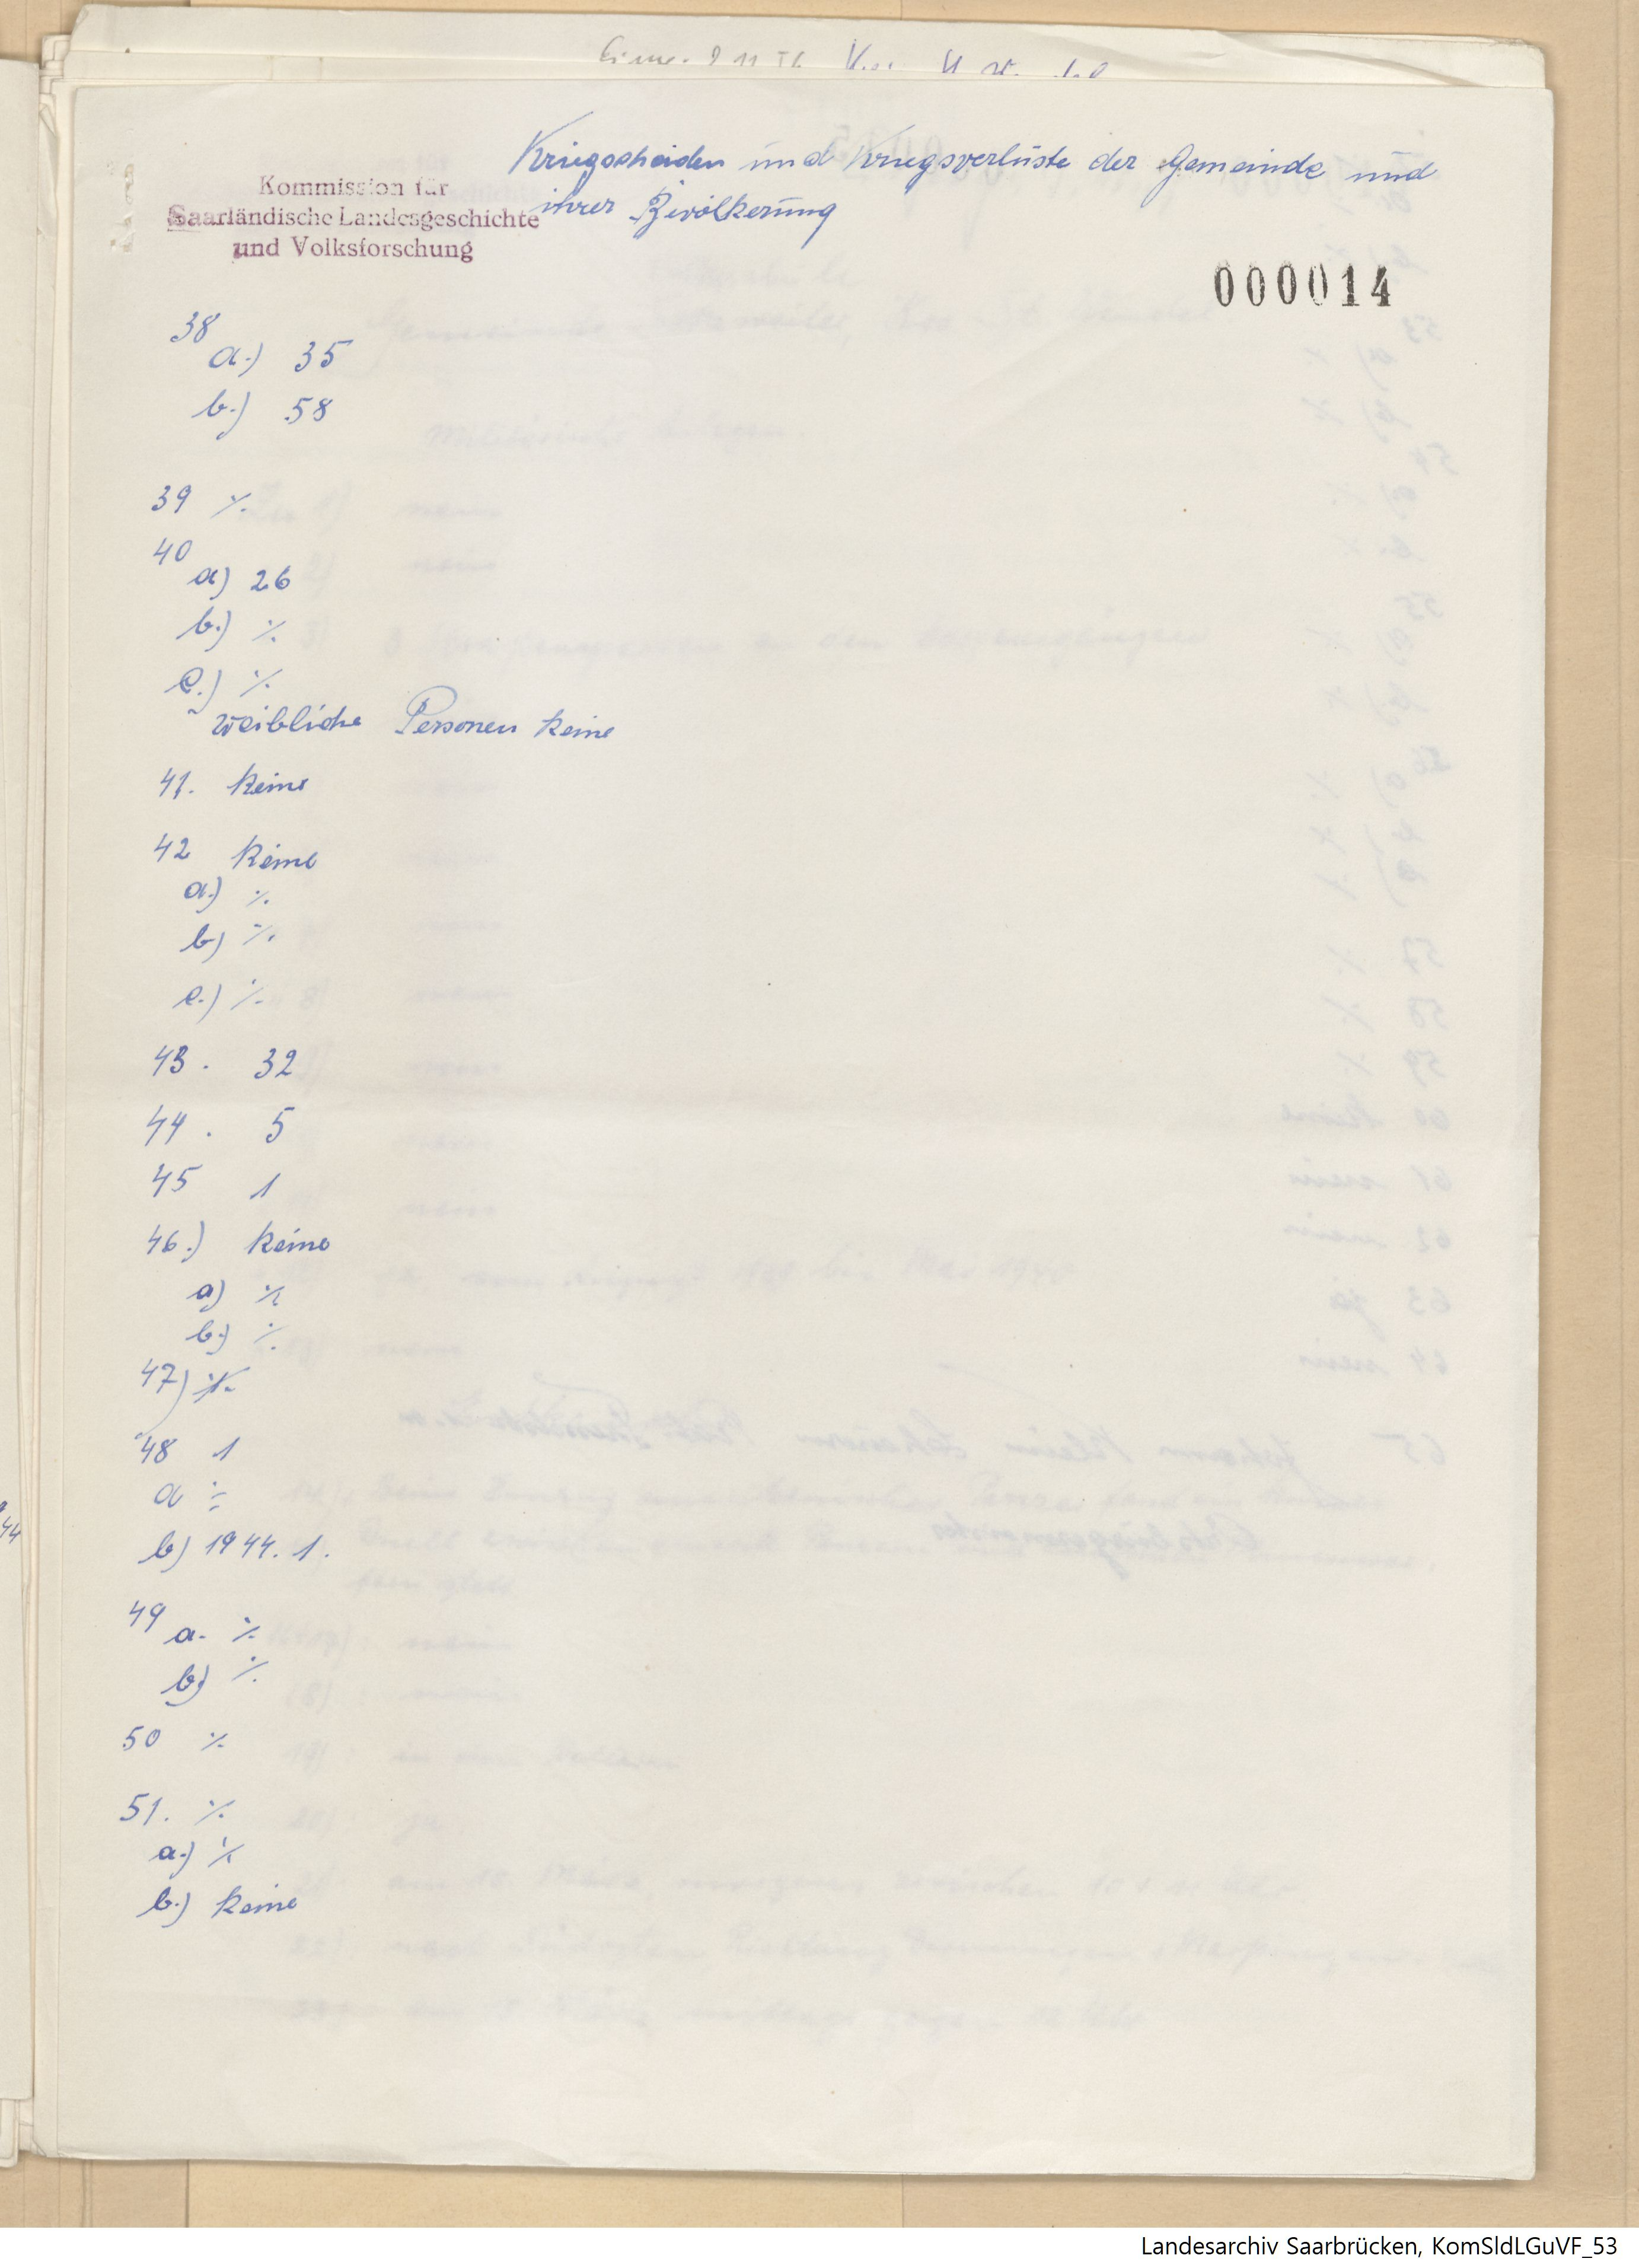 Kriegsscheiden und Kriegsverluste der Gemeinde und
ihrer Bevölkerung
Kommission für
Saarländische Landesgeschichte
und Volksforschung
000014
38
a.) 35
b.) 58
39 ./.
40
a) 26
b.) ./.
c.) ./.
weibliche Personen keine
41. keine
42 keine
a.) ./.
b) ./.
c.) ./.
43. 32
44. 5
45 1
46.) keine
a) ./.
b.) ./.
47) ./.
48 1
a ./.
b) 1944. 1.
49
a. ./.
b) ./.
50 ./.
51. ./.
a.) ./.
b.) keine
44
Landesarchiv Saarbrücken, KomSldLGuVF_53